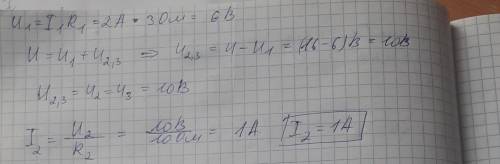 U₁=I₁R₁=2A • 3Ом = 6В
U=U₁+U₂,₃ ⇒ U₂,₃ = U-U₁ = (16-6)В = 10В
U₂,₃ = U₂ = U₃ = 10В
I₂ = U₂/R₂ = 10В/10Ом = 1A I₂ = 1A